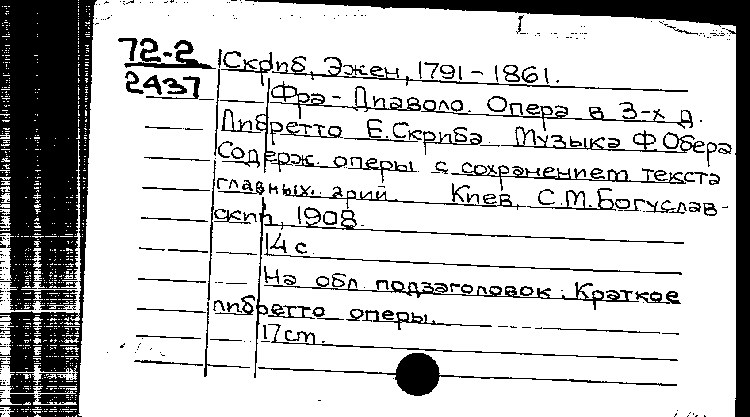 72-2
2437
Скриб, Эжен, 1791-1861.
Фра-Диаволо. Опера в 3-х д.
Либретто Е.Скриба Музыка Ф Обера
Содерж. оперы с сохранением текста
главных. арий. Киев, С.М.Богуслав-
ский, 1908.
14 с
На обл подзаголовок: Краткое
либретто оперы.
17см.